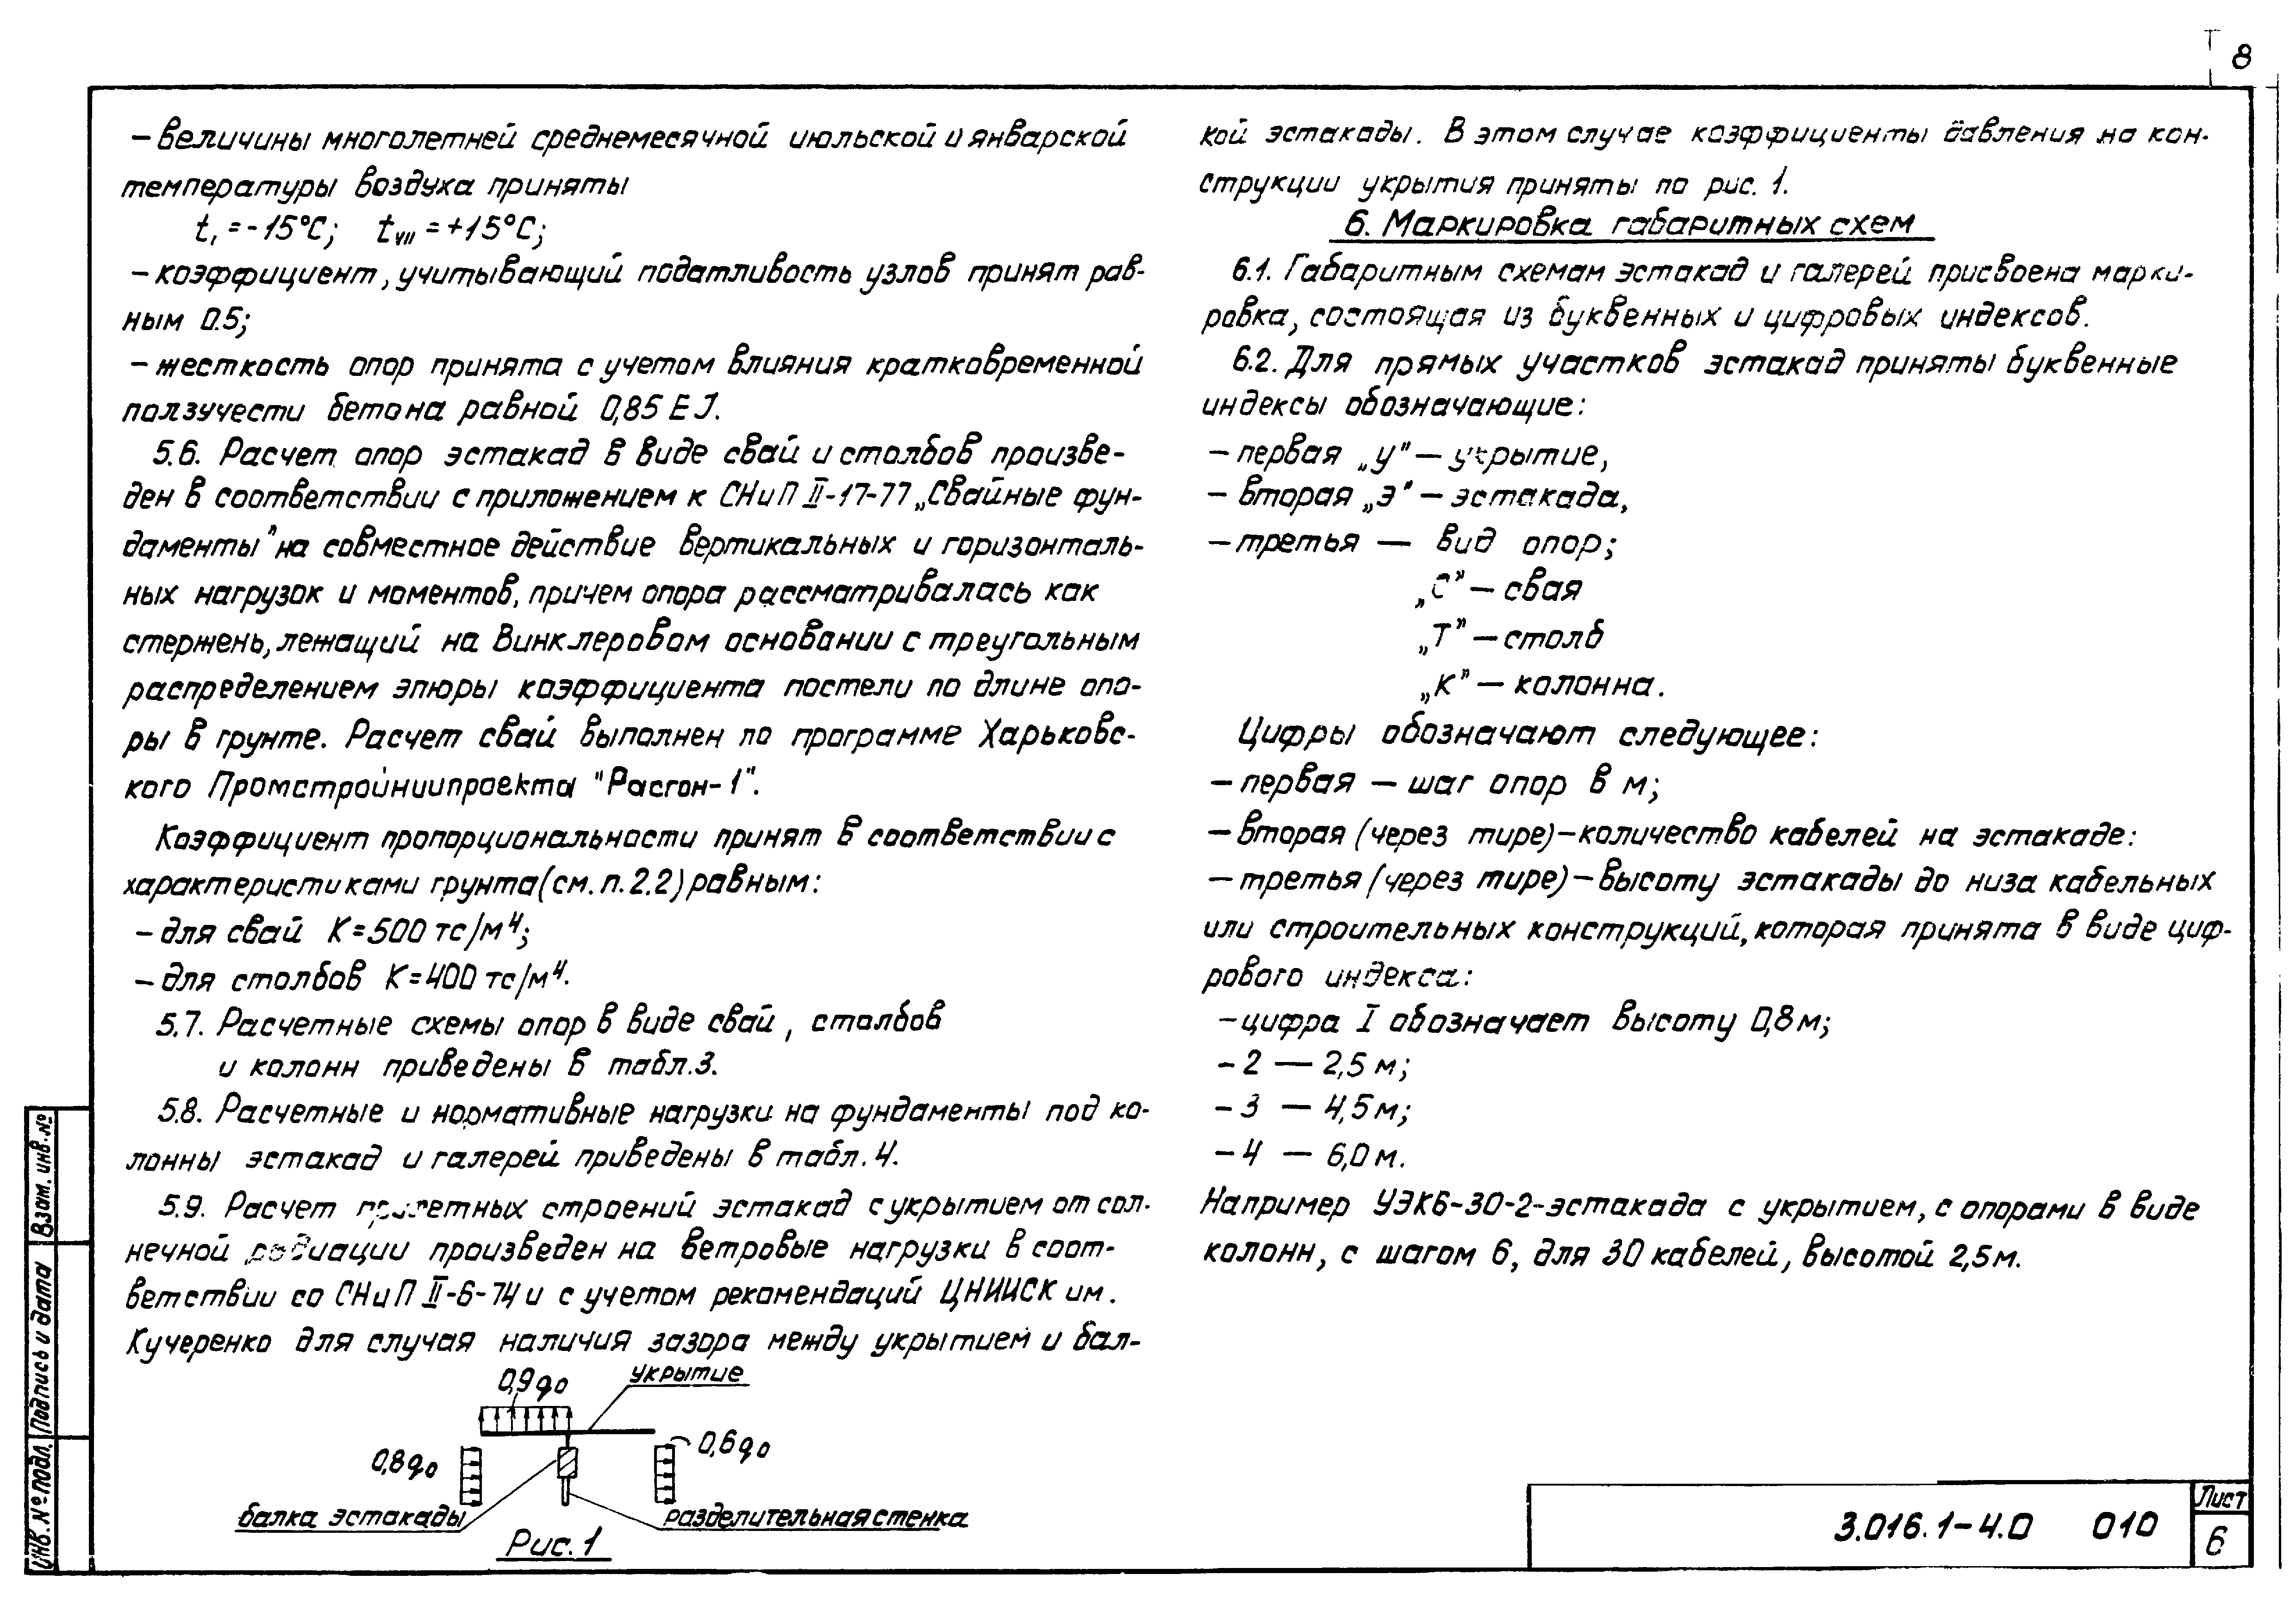 8
— величины многолетней среднемесячной июльской и январской
температуры воздуха приняты
t₁ = -15°С; tVII = +15°С;
— коэффициент, учитывающий податливость узлов принят рав-
ным 0.5;
— жесткость опор принята с учетом влияния кратковременной
ползучести бетона равной 0,85 EJ.
5.6. Расчет опор эстакад в виде свай и столбов произве-
ден в соответствии с приложением к СНиП II-17-77 „Свайные фун-
даменты" на совместное действие вертикальных и горизонталь-
ных нагрузок и моментов, причем опора рассматривалась как
стержень, лежащий на Винклеровом основании с треугольным
распределением эпюры коэффициента постели по длине опо-
ры в грунте. Расчет свай выполнен по программе Харьковс-
кого Промстройниипроекта "Расгон-1".
Коэффициент пропорциональности принят в соответствии с
характеристиками грунта (см. п. 2.2) равным:
— для свай К=500 тс/м⁴;
— для столбов К=400 тс/м⁴.
5.7. Расчетные схемы опор в виде свай, столбов
и колонн приведены в табл.3.
5.8. Расчетные и нормативные нагрузки на фундаменты под ко-
лонны эстакад и галерей приведены в табл. 4.
5.9. Расчет пролетных строений эстакад с укрытием от сол-
нечной радиации произведен на ветровые нагрузки в соот-
ветствии со СНиП II-6-74 и с учетом рекомендаций ЦНИИСК им.
Кучеренко для случая наличия зазора между укрытием и бал-
0,9 q₀
укрытие
0,8 q₀
0,6 q₀
балка эстакады
разделительная стенка
Рис. 1
кой эстакады. В этом случае коэффициенты давления на кон-
струкции укрытия приняты по рис. 1.
6. Маркировка габаритных схем
6.1. Габаритным схемам эстакад и галерей присвоена марки-
ровка, состоящая из буквенных и цифровых индексов.
6.2. Для прямых участков эстакад приняты буквенные
индексы обозначающие:
— первая „У" — укрытие,
— вторая „Э" — эстакада,
— третья — вид опор;
„С" — свая
„Т" — столб
„К" — колонна.
Цифры обозначают следующее:
— первая — шаг опор в м;
— вторая (через тире) — количество кабелей на эстакаде:
— третья (через тире) — высоту эстакады до низа кабельных
или строительных конструкций, которая принята в виде циф-
рового индекса:
— цифра I обозначает высоту 0,8м;
- 2 — 2,5 м;
- 3 — 4,5м;
- 4 — 6,0м.
Например УЭК6-30-2-эстакада с укрытием, с опорами в виде
колонн, с шагом 6, для 30 кабелей, высотой 2,5м.
Инв. № подл. Подпись и дата Взам. инв. №
3.016.1-4.0 010
Лист
6